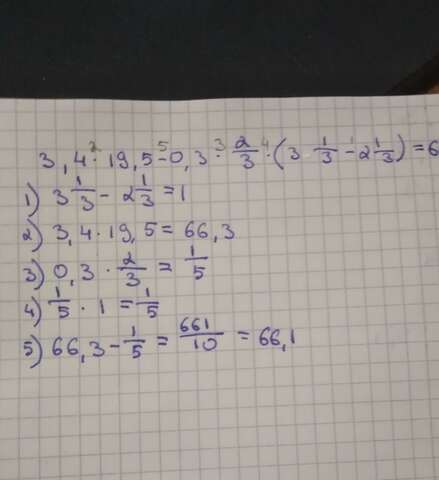 3,4 · 19,5 - 0,3 · 2/3 · (3 1/3 - 2 1/3) = 6
1) 3 1/3 - 2 1/3 = 1
2) 3,4 · 19,5 = 66,3
3) 0,3 · 2/3 = 1/5
4) 1/5 · 1 = 1/5
5) 66,3 - 1/5 = 661/10 = 66,1